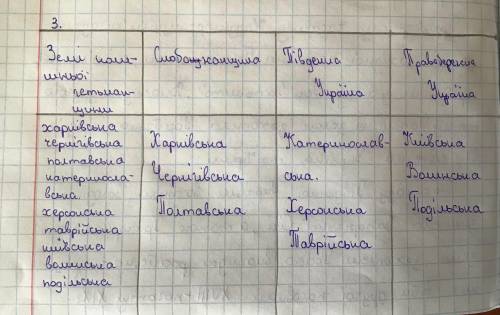 3.
Землі коли-
шньої
гетьман-
щини
Слобожанщина
Південна
Україна
Правобережна
Україна
харківська
чернігівська
полтавська
катериносла-
вська.
херсонська
таврійська
київська
волинська
подільська
Харківська
Чернігівська
Полтавська
Катеринослав-
ська.
Херсонська
Таврійська
Київська
Волинська
Подільська